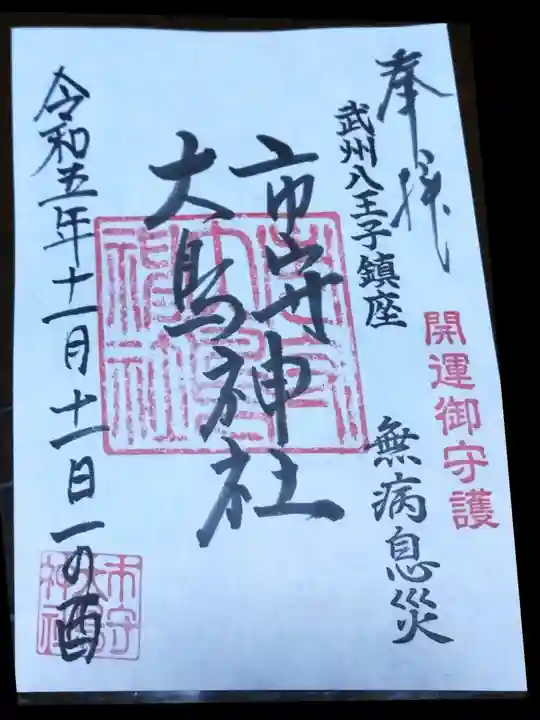 奉拝
武州八王子鎮座
開運御守護
無病息災
市守
大鳥神社
令和五年十一月十一日一の酉